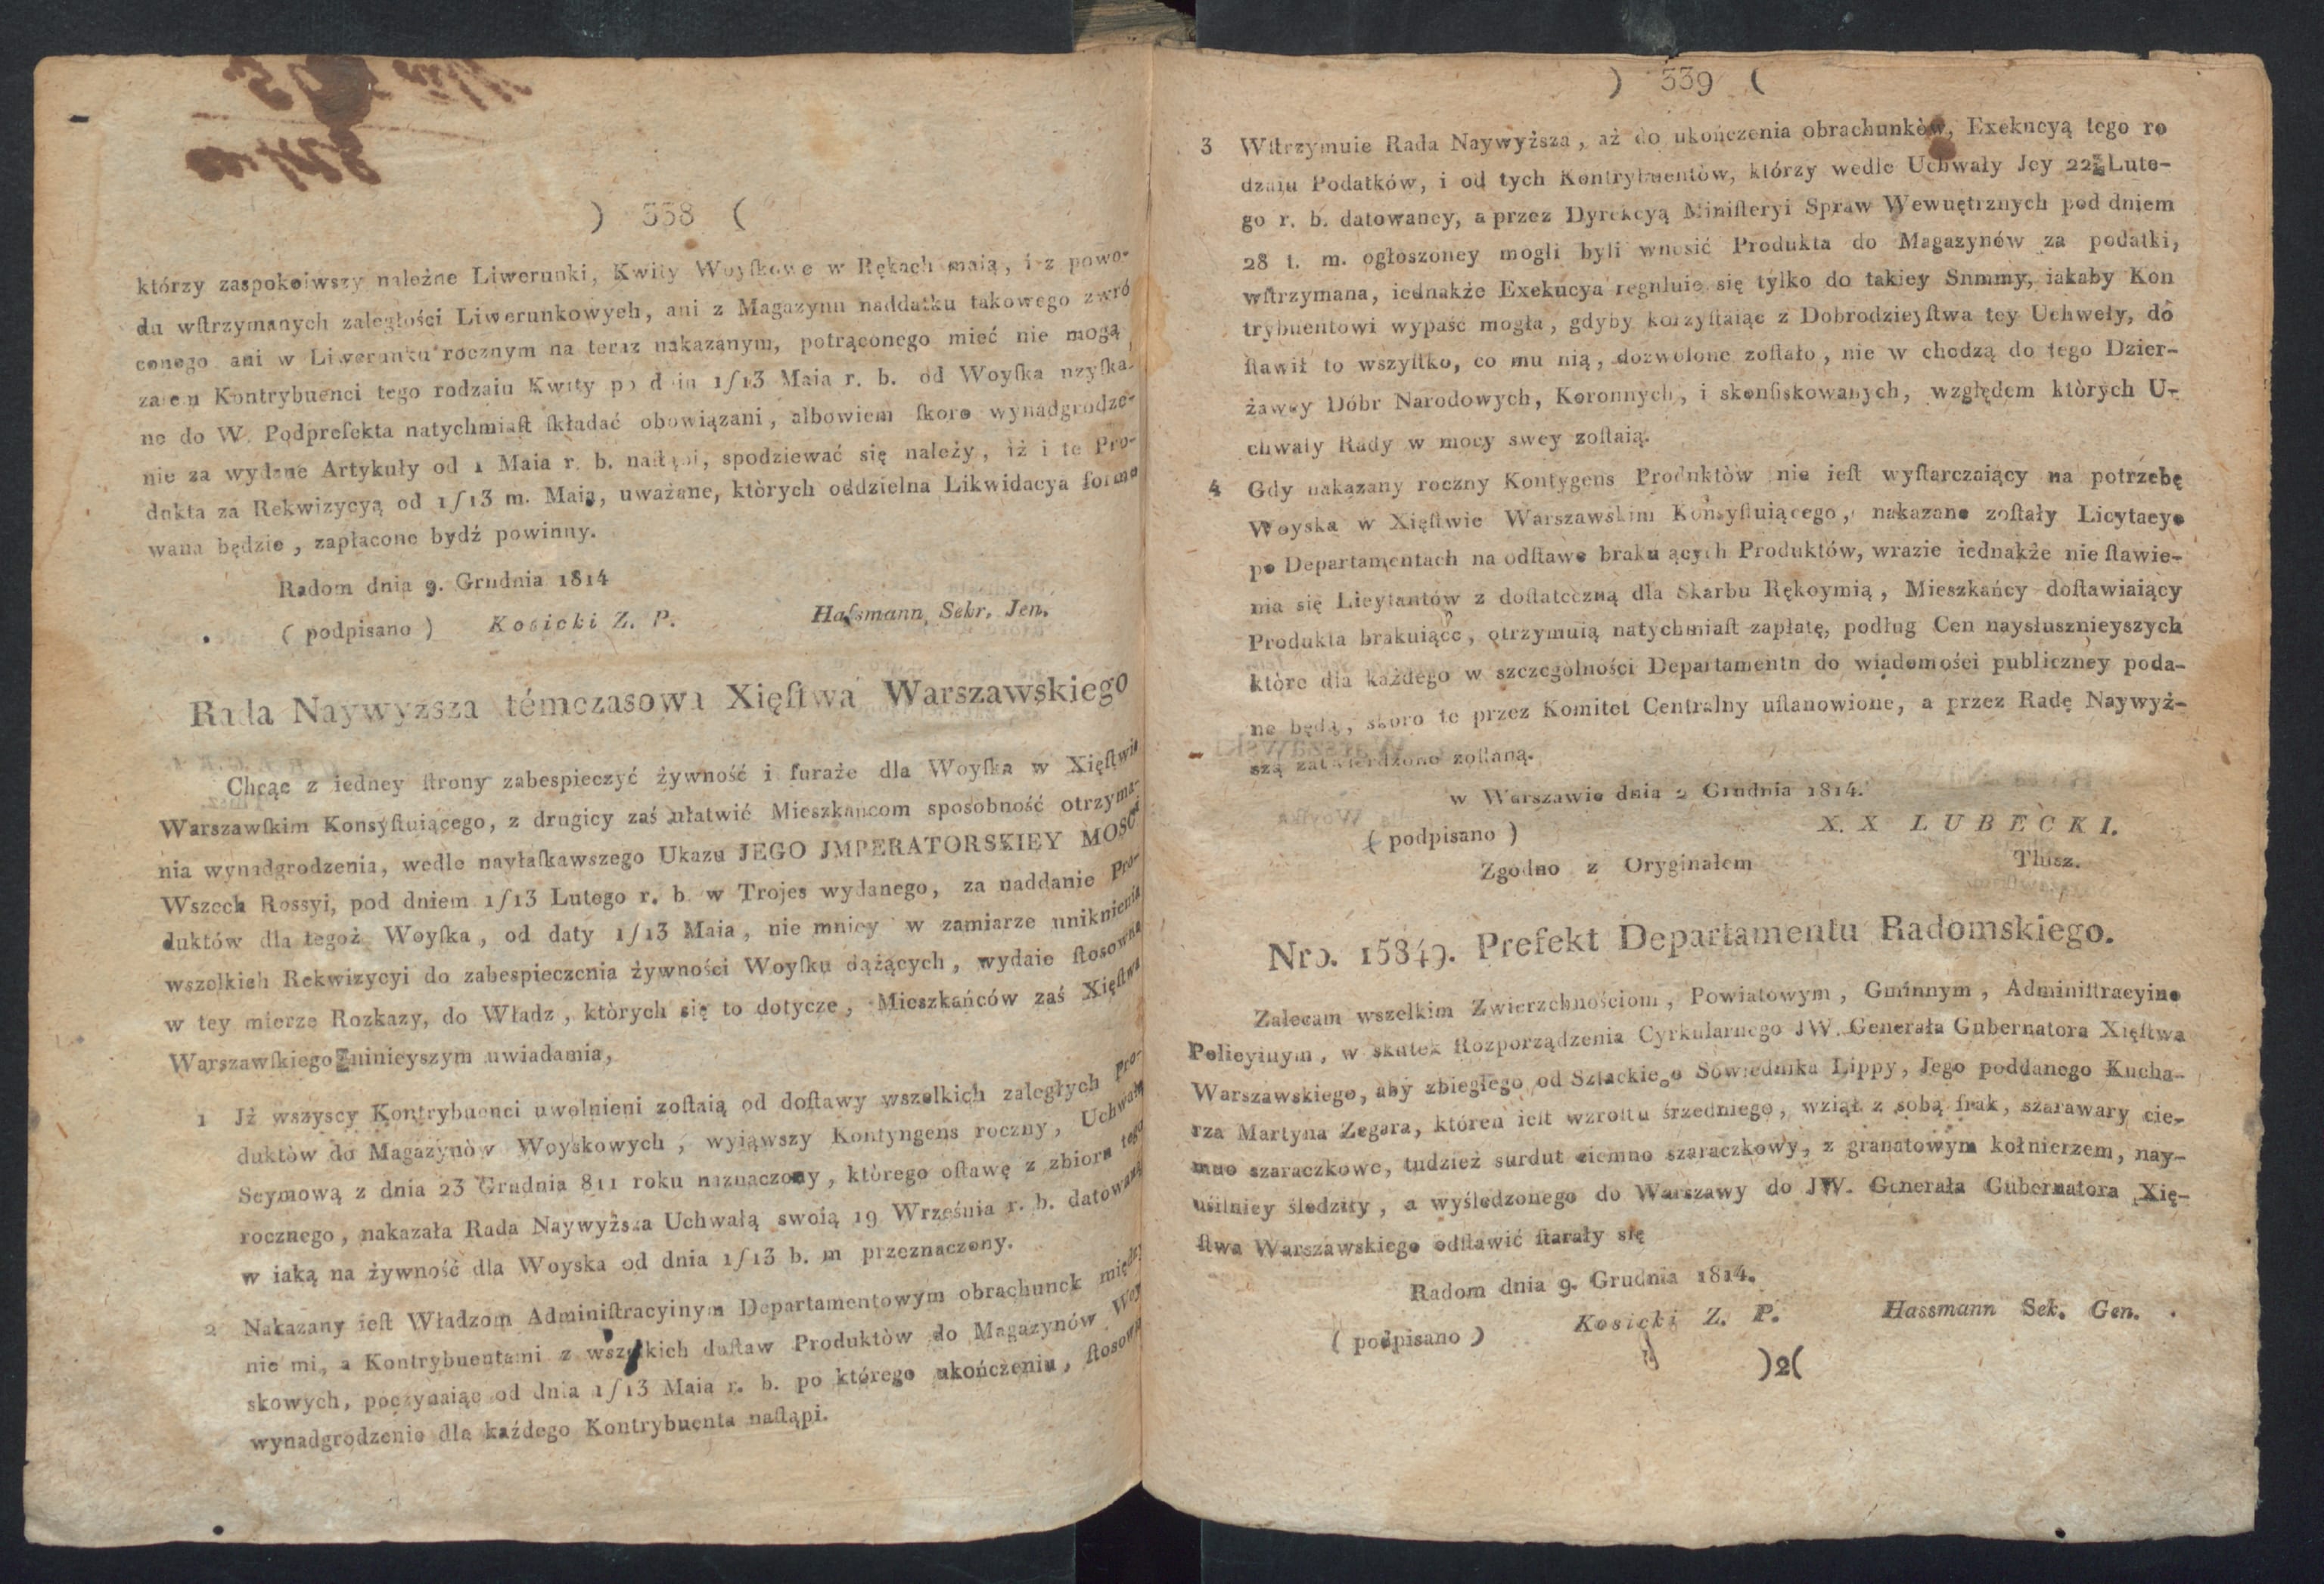 ) 338 (
którzy zaspokoiwszy należne Liwerunki, Kwity Woyſkowe w Rękach maią, i z powo-
du wſtrzymanych zaległości Liwerunkowych, ani z Magazynu naddatku takowego zwró
conego ani w Liwerunku rocznym na teraz nakazanym, potrąconego mieć nie mogą,
zatem Kontrybuenci tego rodzaiu Kwity po dniu 1/13 Maia r. b. od Woyſka uzyſka-
ne do W. Podprefekta natychmiaſt ſkładać obowiązani, albowiem ſkoro wynadgrodze-
nie za wydane Artykuły od 1 Maia r. b. naſtąpi, spodziewać się należy, iż i te Pro-
dukta za Rekwizycyą od 1/13 m. Maia, uważane, których oddzielna Likwidacya formo
wana będzie, zapłacone bydź powinny.
Radom dnia 9. Grudnia 1814
( podpisano ) Kosicki Z. P. Haſsmann, Sekr. Jen.
Rada Naywyższa témczasowa Xięſtwa Warszawskiego
Chcąc z iedney ſtrony zabespieczyć żywność i furaże dla Woyſka w Xięſtwie
Warszawſkim Konsyſtuiącego, z drugiey zaś ułatwić Mieszkańcom sposobność otrzyma-
nia wynadgrodzenia, wedle nayłaſkawszego Ukazu JEGO JMPERATORSKIEY MOSCI
Wszech Rossyi, pod dniem 1/13 Lutego r. b. w Trojes wydanego, za naddanie Pro-
duktów dla tegoż Woyſka, od daty 1/13 Maia, nie mniey w zamiarze uniknienia
wszelkich Rekwizycyi do zabespieczenia żywności Woyſku dążących, wydaie ſtosowne
w tey mierze Rozkazy, do Władz, których się to dotycze, Mieszkańców zaś Xięſtwa
Warszawſkiego ninieyszym uwiadamia,
1 Jż wszyscy Kontrybuenci uwolnieni zoſtaią od doſtawy wszelkich zaległych Pro-
duktòw do Magazynòw Woyskowych, wyiąwszy Kontyngens roczny, Uchwałą
Seymową z dnia 23 Grudnia 811 roku naznaczony, którego oſtawę z zbioru tego
rocznego, nakazała Rada Naywyższa Uchwałą swoią 19 Września r. b. datowaną
w iaką na żywność dla Woyska od dnia 1/13 b. m przeznaczony.
2 Nakazany ieſt Władzom Adminiſtracyinym Departamentowym obrachunek między
nie mi, a Kontrybuentami z wszelkich doſtaw Produktòw do Magazynów Woy
skowych, poczynaiąc od dnia 1/13 Maia r. b. po którego ukończeniu, ſtosowne
wynadgrodzenie dla każdego Kontrybuenta naſtąpi.
) 339 (
3 Wſtrzymuie Rada Naywyższa, aż do ukończenia obrachunkòw, Exekucyą tego ro
dzaiu Podatków, i od tych Kontrybuentòw, którzy wedle Uchwały Jey 22 Lute-
go r. b. datowaney, a przez Dyrekcyą Miniſteryi Spraw Wewnętrznych pod dniem
28 t. m. ogłoszoney mogli byli wnosić Produkta do Magazynów za podatki,
wſtrzymana, iednakże Exekucya reguluie się tylko do takiey Snmmy, iakaby Kon
trybuentowi wypaść mogła, gdyby korzyſtaiąc z Dobrodzieyſtwa tey Uchweły, do
ſtawił to wszyſtko, co mu nią, dozwolone zoſtało, nie w chodzą do tego Dzier-
żawcy Dóbr Narodowych, Koronnych, i skonfiskowanych, względem których U-
chwały Rady w mocy swey zoſtaią.
4 Gdy nakazany roczny Kontygens Produktòw nie ieſt wyſtarczaiący na potrzebę
Woyska w Xięſtwie Warszawskim Konsyſtuiącego, nakazane zoſtały Licytacye
po Departamentach na odſtawe braku ących Produktów, wrazie iednakże nie ſtawie-
nia się Licytantów z doſtateczną dla Skarbu Rękoymią, Mieszkańcy doſtawiaiący
Produkta brakuiące, otrzymuią natychmiaſt zapłatę, podług Cen naysłusznieyszych
które dla każdego w szczególności Departamentn do wiadomości publiczney poda-
ne będą, skoro te przez Komitet Centralny uſtanowione, a przez Radę Naywyż-
szą zatwierdzone zoſtaną.
w Warszawie dnia 2 Grudnia 1814.
( podpisano ) X. X LUBECKI.
Zgodno z Oryginałem Tłusz.
Nro. 15849. Prefekt Departamentu Radomskiego.
Zalecam wszelkim Zwierzchnościom, Powiatowym, Gminnym, Adminiſtracyino
Policyinym, w skutek Rozporządzenia Cyrkularnego JW. Generała Gubernatora Xięſtwa
Warszawskiego, aby zbiegłego od Szlackiego Sowiednika Lippy, Jego poddanego Kucha-
rza Martyna Zegara, któren ieſt wzroſtu śrzedniego, wziął z sobą frak, szarawary cie-
mno szaraczkowe, tudzież surdut ciemno szaraczkowy, z granatowym kołnierzem, nay-
usilniey śledziły, a wyśledzonego do Warszawy do JW. Generała Gubernatora Xię-
ſtwa Warszawskiego odſtawić ſtarały się
Radom dnia 9. Grudnia 1814.
( podpisano ) Kosicki Z. P. Hassmann Sek. Gen.
)2(